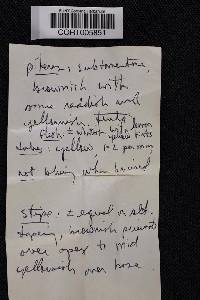 CORT005851
pileus: subtomentose,
brownish with
some reddish and
yellowish tints
flesh: ± whitish with lemon
yellow tints
tubes: yellow
not bluing when bruised
stipe: ± equal or sl.
tapering, brownish pruinate
over apex to mid
yellowish over base